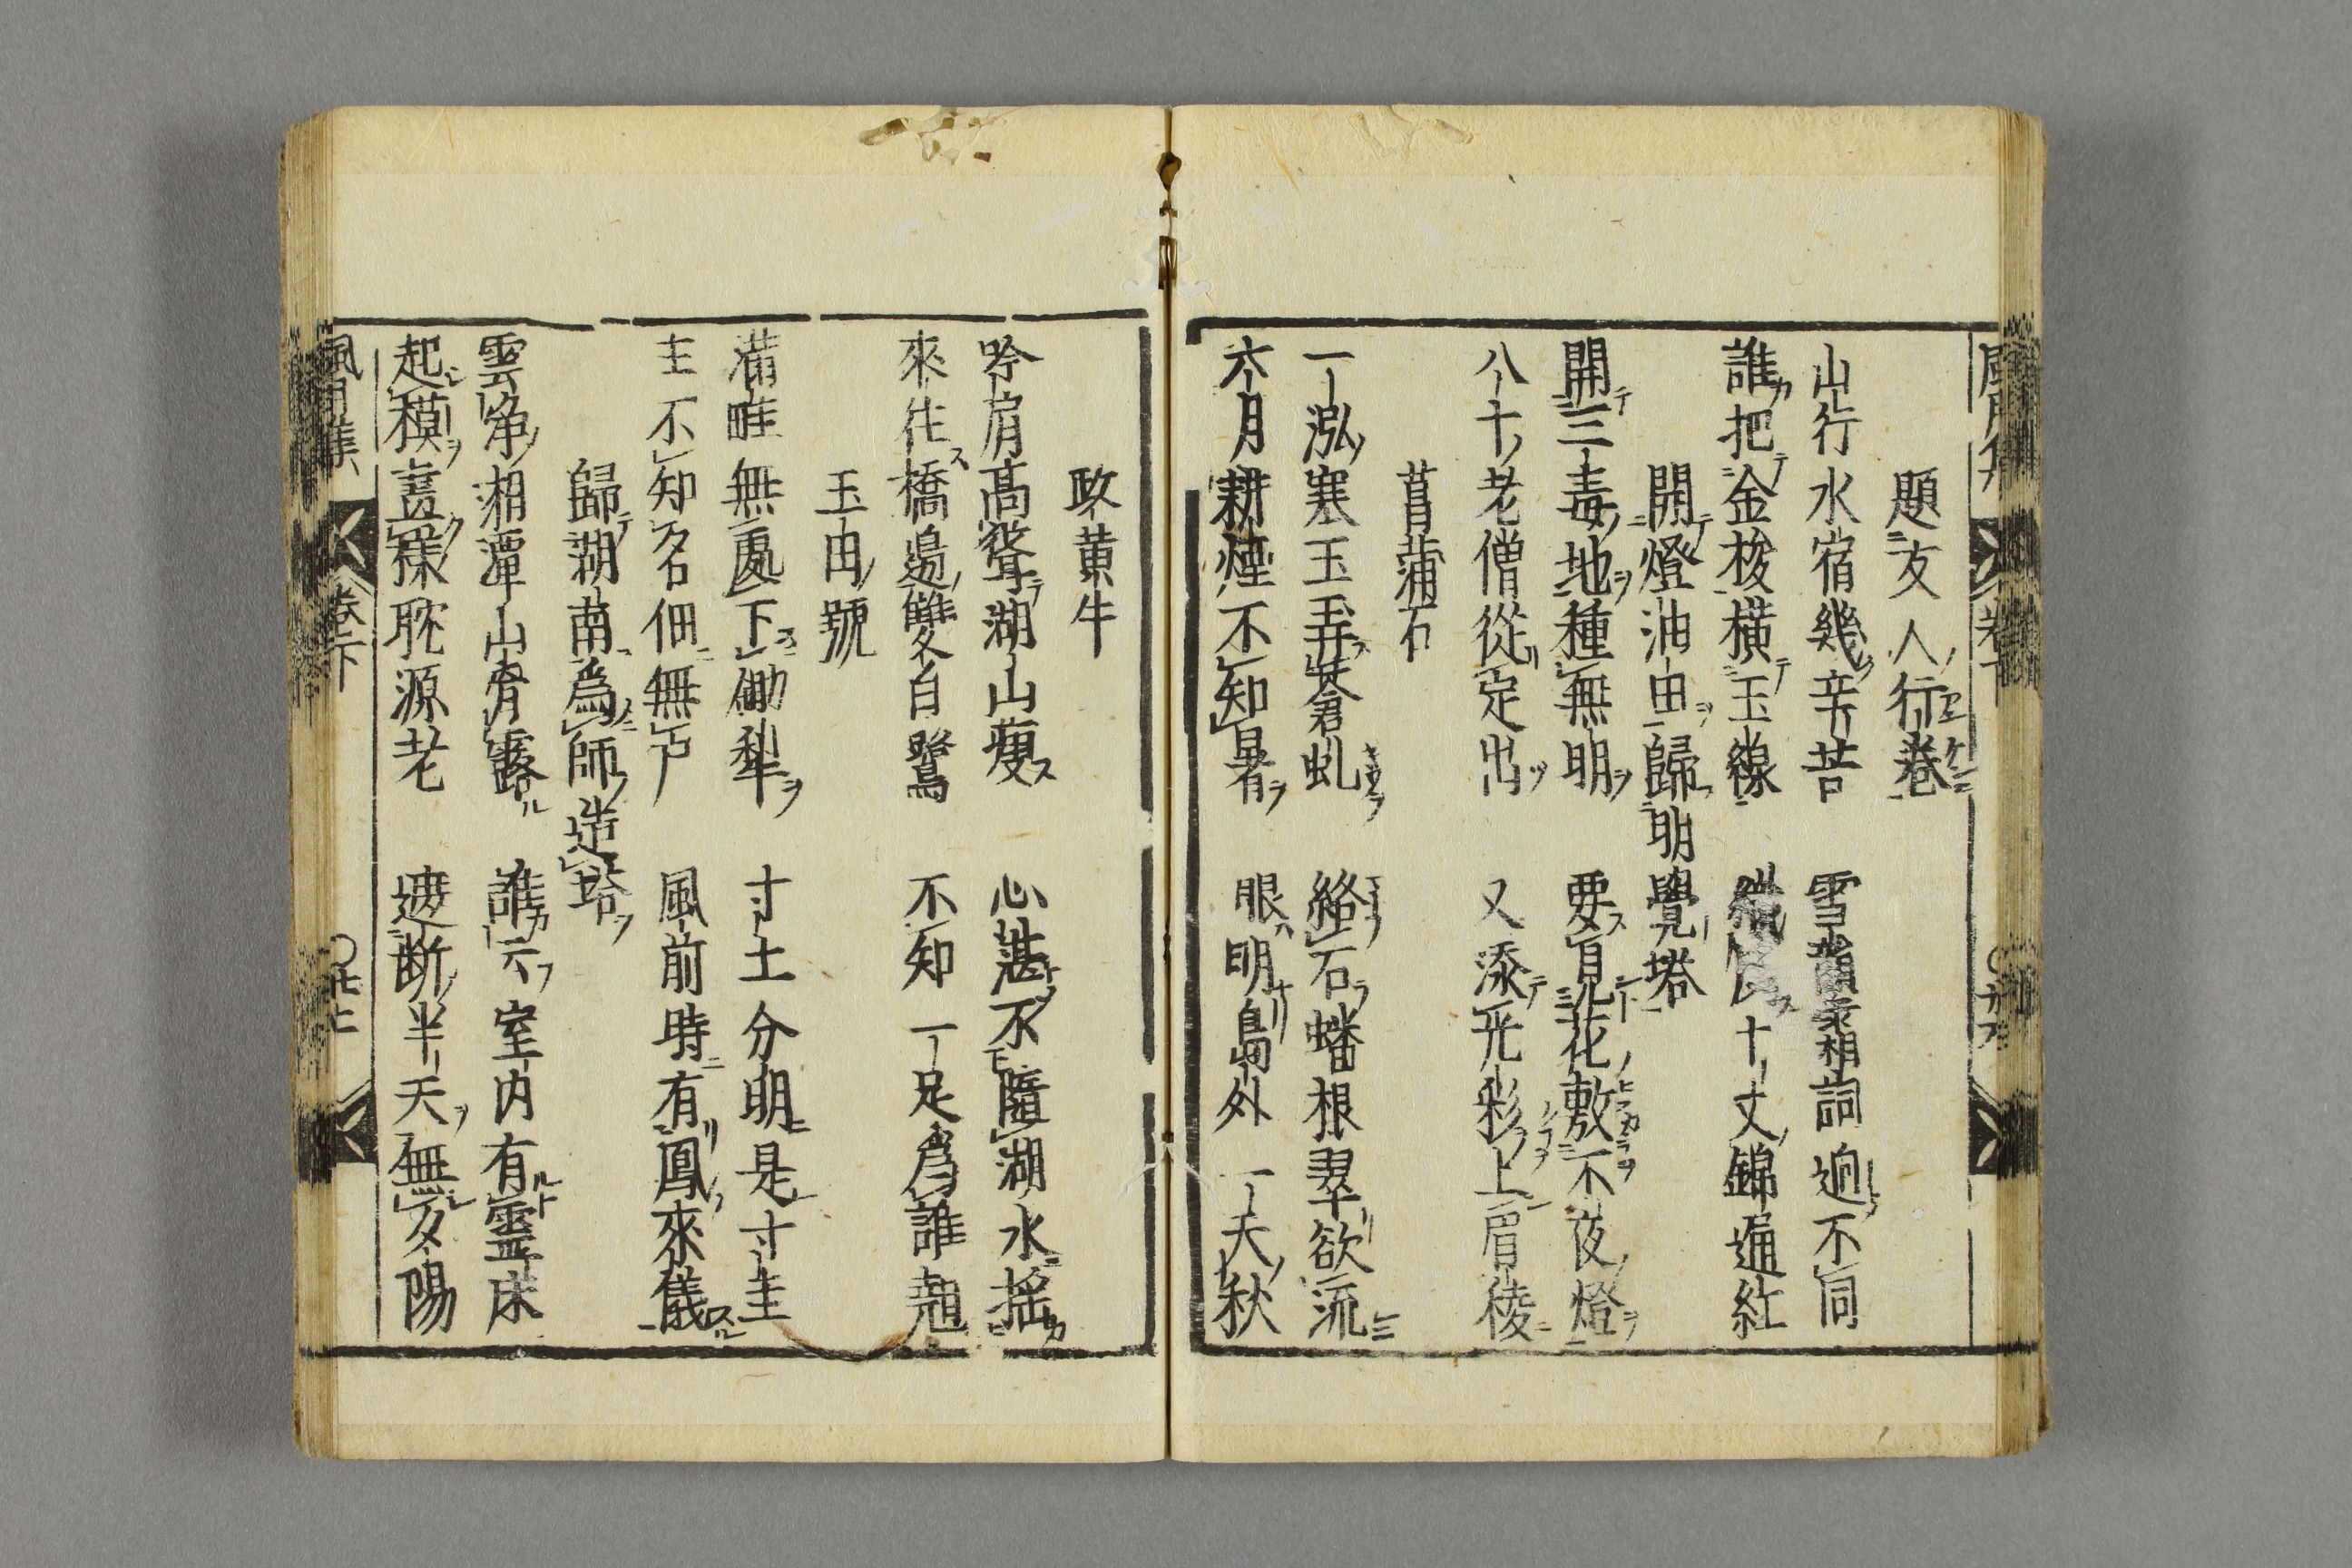 題友人行卷
山行水宿幾辛苦 雪韻霜詞逈不同
誰把金梭橫玉線 十丈錦遍紅
開燈油田歸明覺塔
開三毒地種無明 要見花敷不夜燈
八十老僧從定出 又添光彩上眉稜
菖蒲石
一泓寒玉弄蒼虬 絡石蟠根翠欲流
六月耕煙不知暑 眼明島外一天秋
政黄牛
吟肩高聳湖山瘦 心湛不隨湖水搖
來往橋邊雙白鷺 不知一足爲誰翹
玉田號
滿畦無處下鋤犂 寸土分明是寸圭
主不知名佃無戶 風前時有鳳來儀
歸湖南爲師造塔
雲净湘潭山骨露 誰云室内有靈床
起模畫樣耽源老 遮断半天無夕陽
風月集 卷下